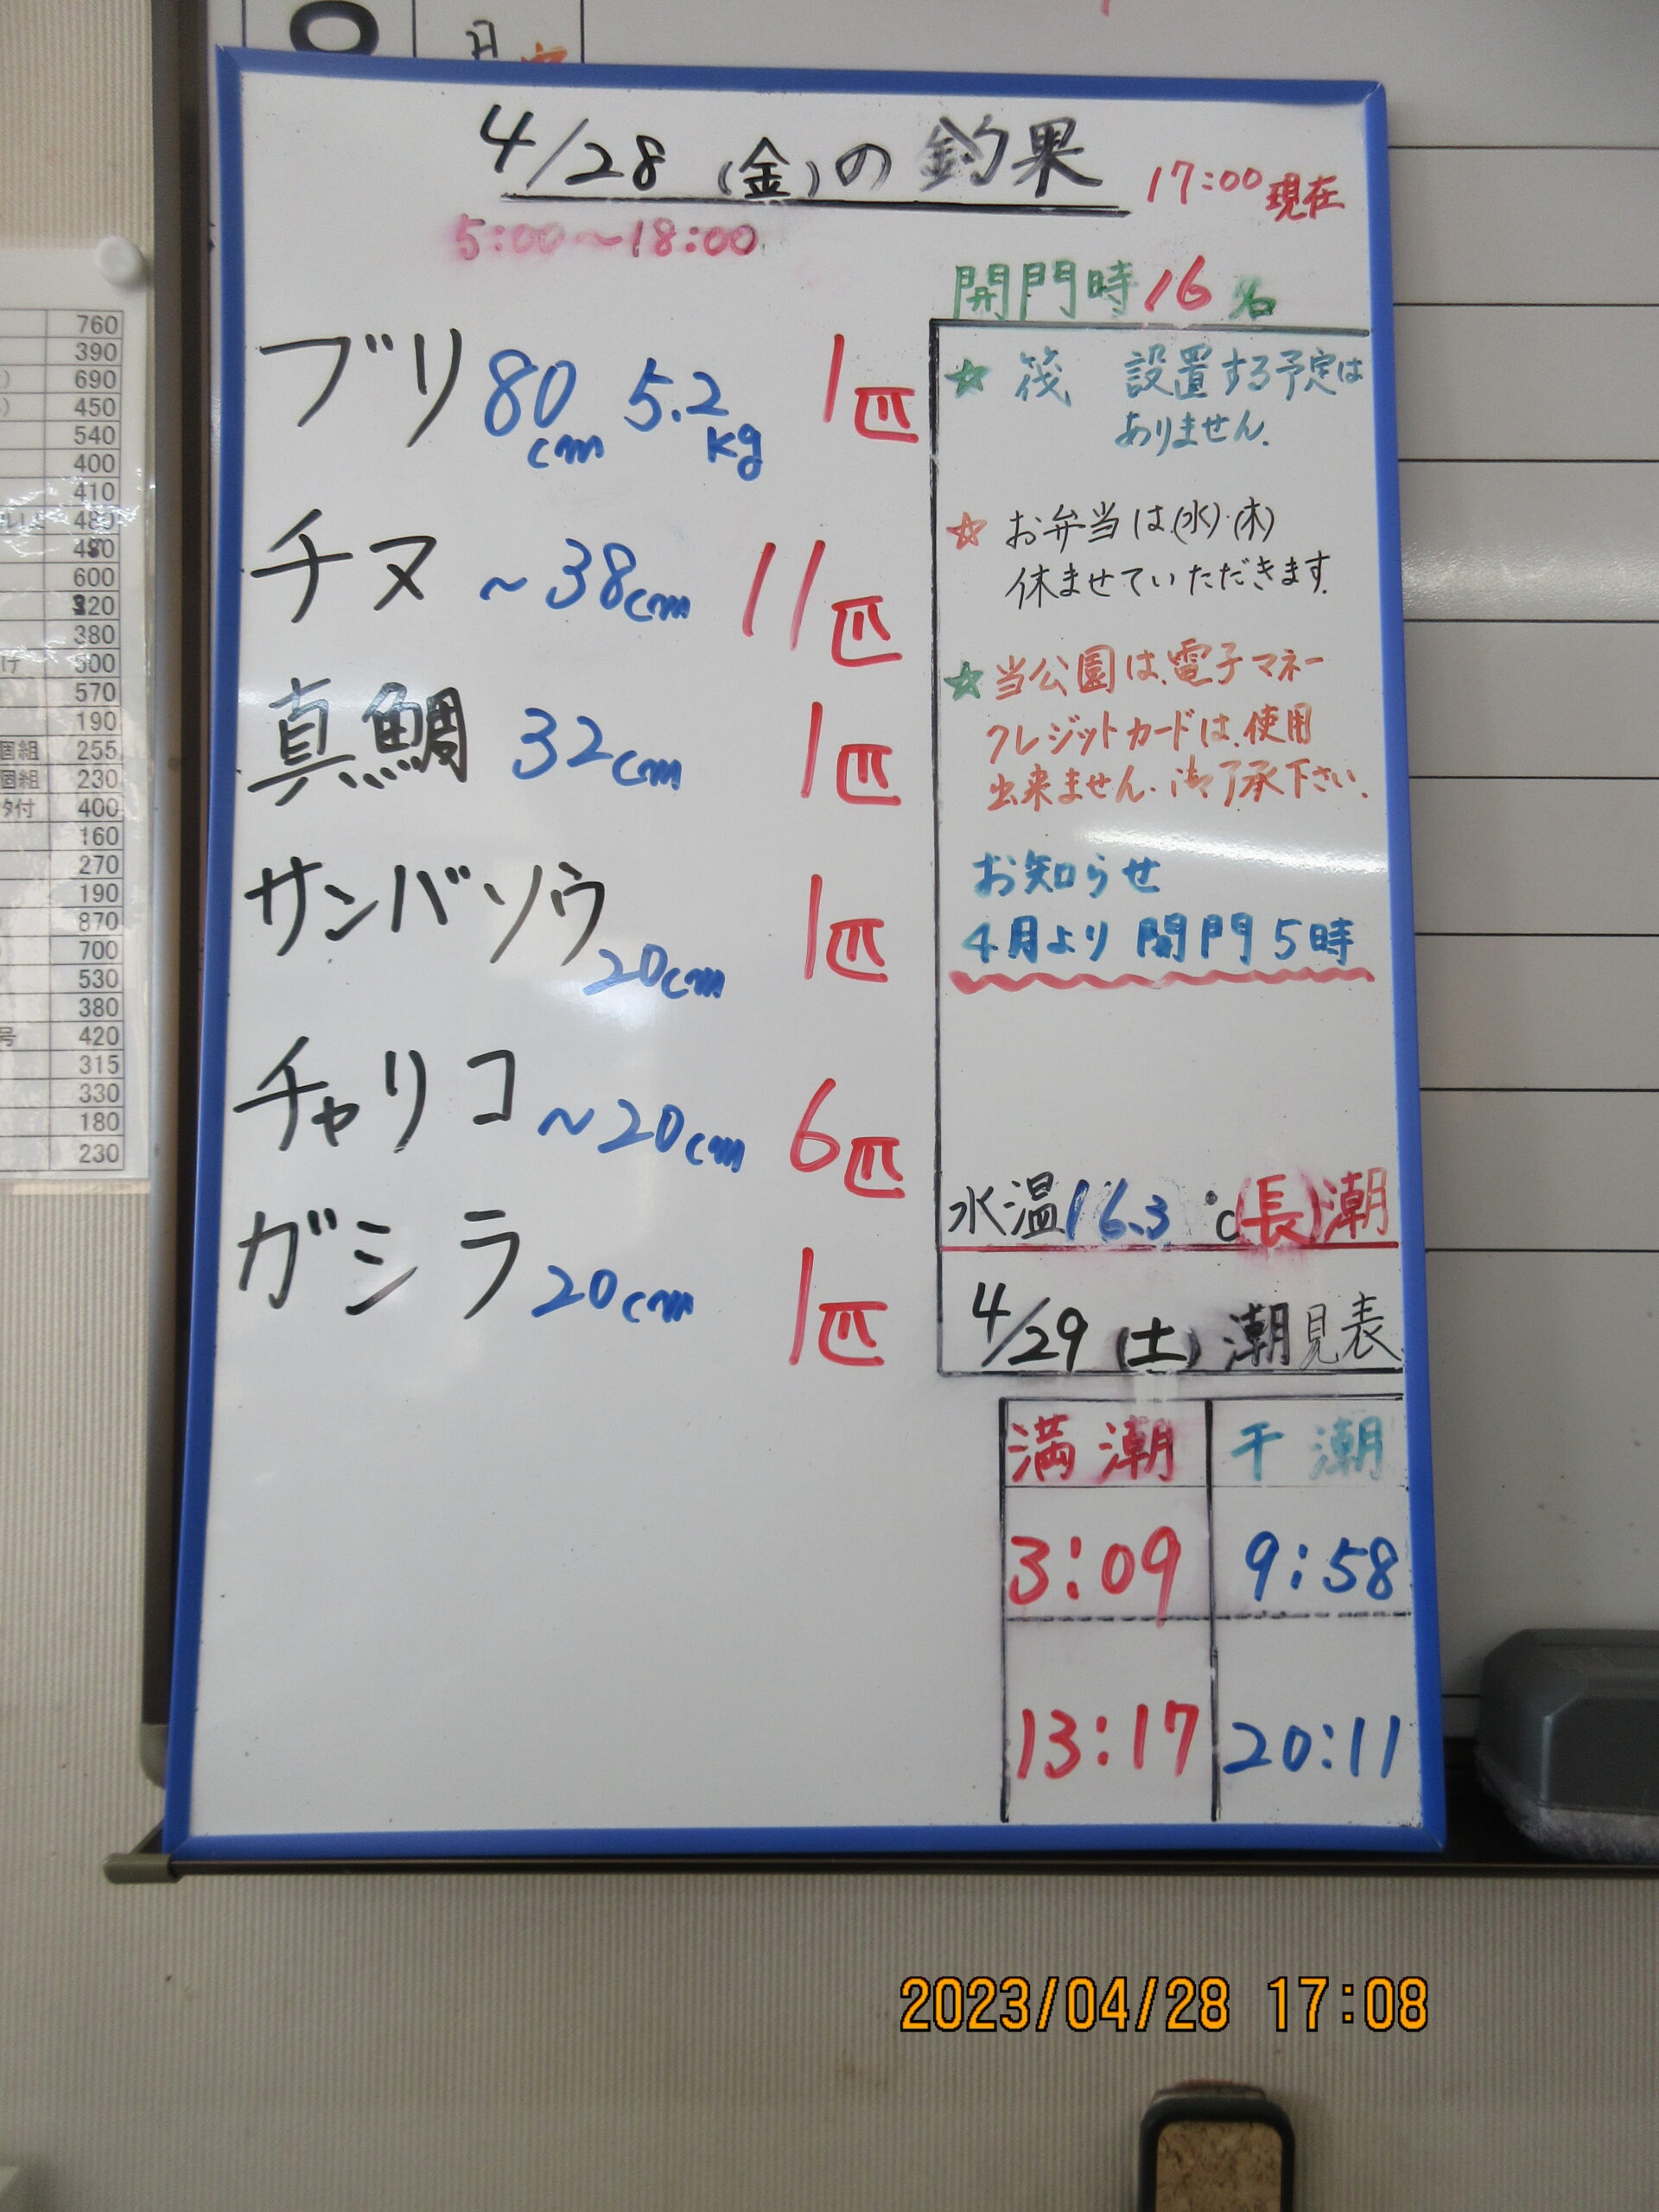 4/28(金)の釣果
17:00現在
5:00〜18:00
開門時16名
ブリ 80cm 5.2kg 1匹
チヌ 〜38cm 11匹
真鯛 32cm 1匹
サンバソウ 20cm 1匹
チャリコ 〜20cm 6匹
ガシラ 20cm 1匹
☆ 筏 設置する予定は
ありません.
☆ お弁当は(水)・(木)
休ませていただきます.
☆ 当公園は、電子マネー
クレジットカードは、使用
出来ません.御了承下さい.
お知らせ
4月より 開門5時
水温16.3℃(長)潮
4/29(土)潮見表
満潮 干潮
3:09 9:58
13:17 20:11
2023/04/28 17:08
月
760
390
690
450
540
400
410
480
600
380
570
190
個組 255
個組 230
タ付 400
160
270
190
870
700
530
380
号 420
315
330
180
230